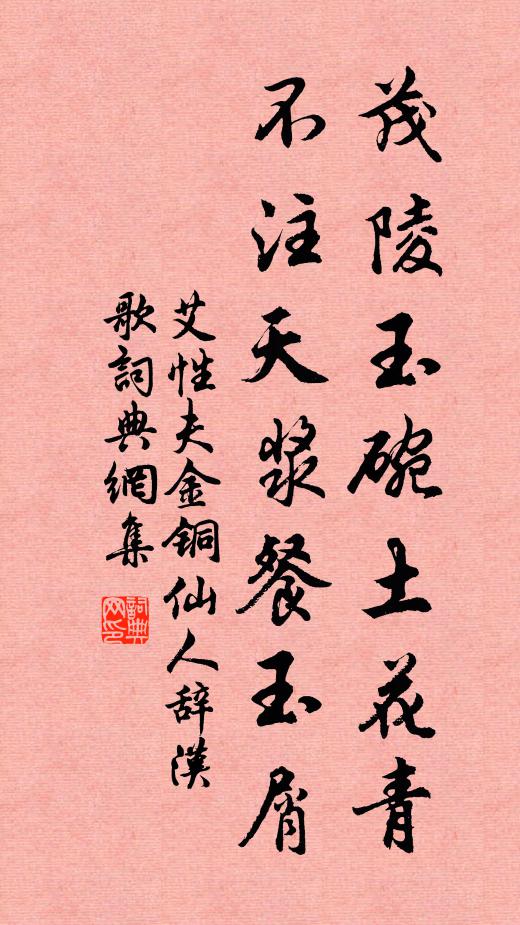 茂陵玉碗土花青
不注天浆餐玉屑
艾性夫金铜仙人辞漢
歌詞典網集
詞典网印